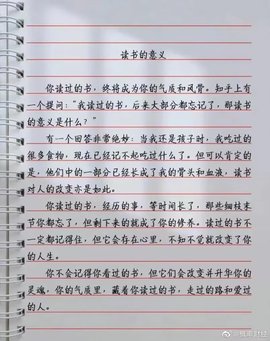 读书的意义
你读过的书，终将成为你的气质和风骨。知乎上有
一个提问：“我读过的书，后来大部分都忘记了，那读书
的意义是什么？”
有一个回答非常绝妙：当我还是孩子时，我吃过的
很多食物，现在已经记不起吃过什么了。但可以肯定的
是，他们中的一部分已经长成了我的骨头和血液，读书
对人的改变亦是如此。
你读过的书，经历的事，等时间长了，那些细枝末
节你都忘了，但剩下来的就成了你的修养。读过的书不
一定都记得住，但它会存在心里，不知不觉就改变了你
的人生。
你不会记得你看过的书，但它们会改变并升华你的
灵魂，你的气质里，藏着你读过的书，走过的路和爱过
的人。